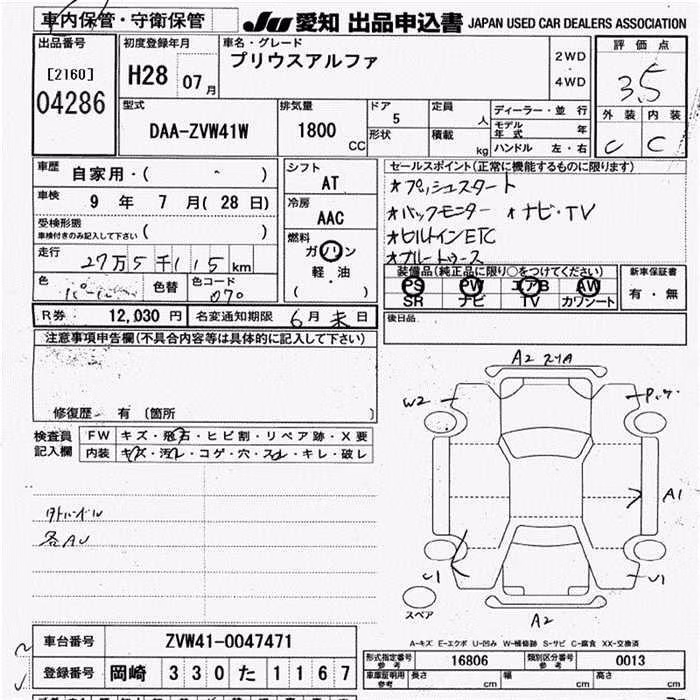 車内保管・守衛保管
JU 愛知 出品申込書 JAPAN USED CAR DEALERS ASSOCIATION
出品番号
[2160]
04286
初度登録年月
H28 07月
車名・グレード
プリウスアルファ
2WD
・
4WD
評価点
3.5
外装 内装
C C
型式
DAA-ZVW41W
排気量
1800 CC
ドア
5
形状
定員
人
積載
kg
ディーラー・並行
モデル年式 年
ハンドル 左・右
車歴 自家用・( )
車検 9年 7月(28日)
受検形態
車検付きのみ記入して下さい ( )
走行 27万5千115km
色 パール 色替 色コード 070
シフト
AT
冷房
AAC
燃料
ガソリン
軽・油
( )
セールスポイント(正常に機能するものに限ります)
★プッシュスタート
★バックモニター ★ナビ・TV
★ビルトインETC
★ブルートゥース
装備品(純正品に限り○をつけてください)
PS PW エアB AW
SR ナビ TV カワシート
新車保証書
有・無
R券 12,030円 名変通知期限 6月末日
後日品
注意事項申告欄(不具合内容等は具体的に記入して下さい)
修復歴- 有 〔箇所 〕
検査員記入欄
FW キズ・飛石・ヒビ割・リペア跡・X要
内装 キズ・汚れ・コゲ・穴・スレ・キレ・破レ
タトハンドル
各AU
A2
W2
A1
U1
U1
スペア
A2
A-キズ E-エクボ U-凹み W-補修跡 S-サビ C-腐食 XX-交換済
車台番号 ZVW41-0047471
登録番号 岡崎 330 た 1167
型式指定番号 参考 16806 類別区分番号 参考 0013
車庫証明用 参考 長さ cm 幅 cm 高さ cm